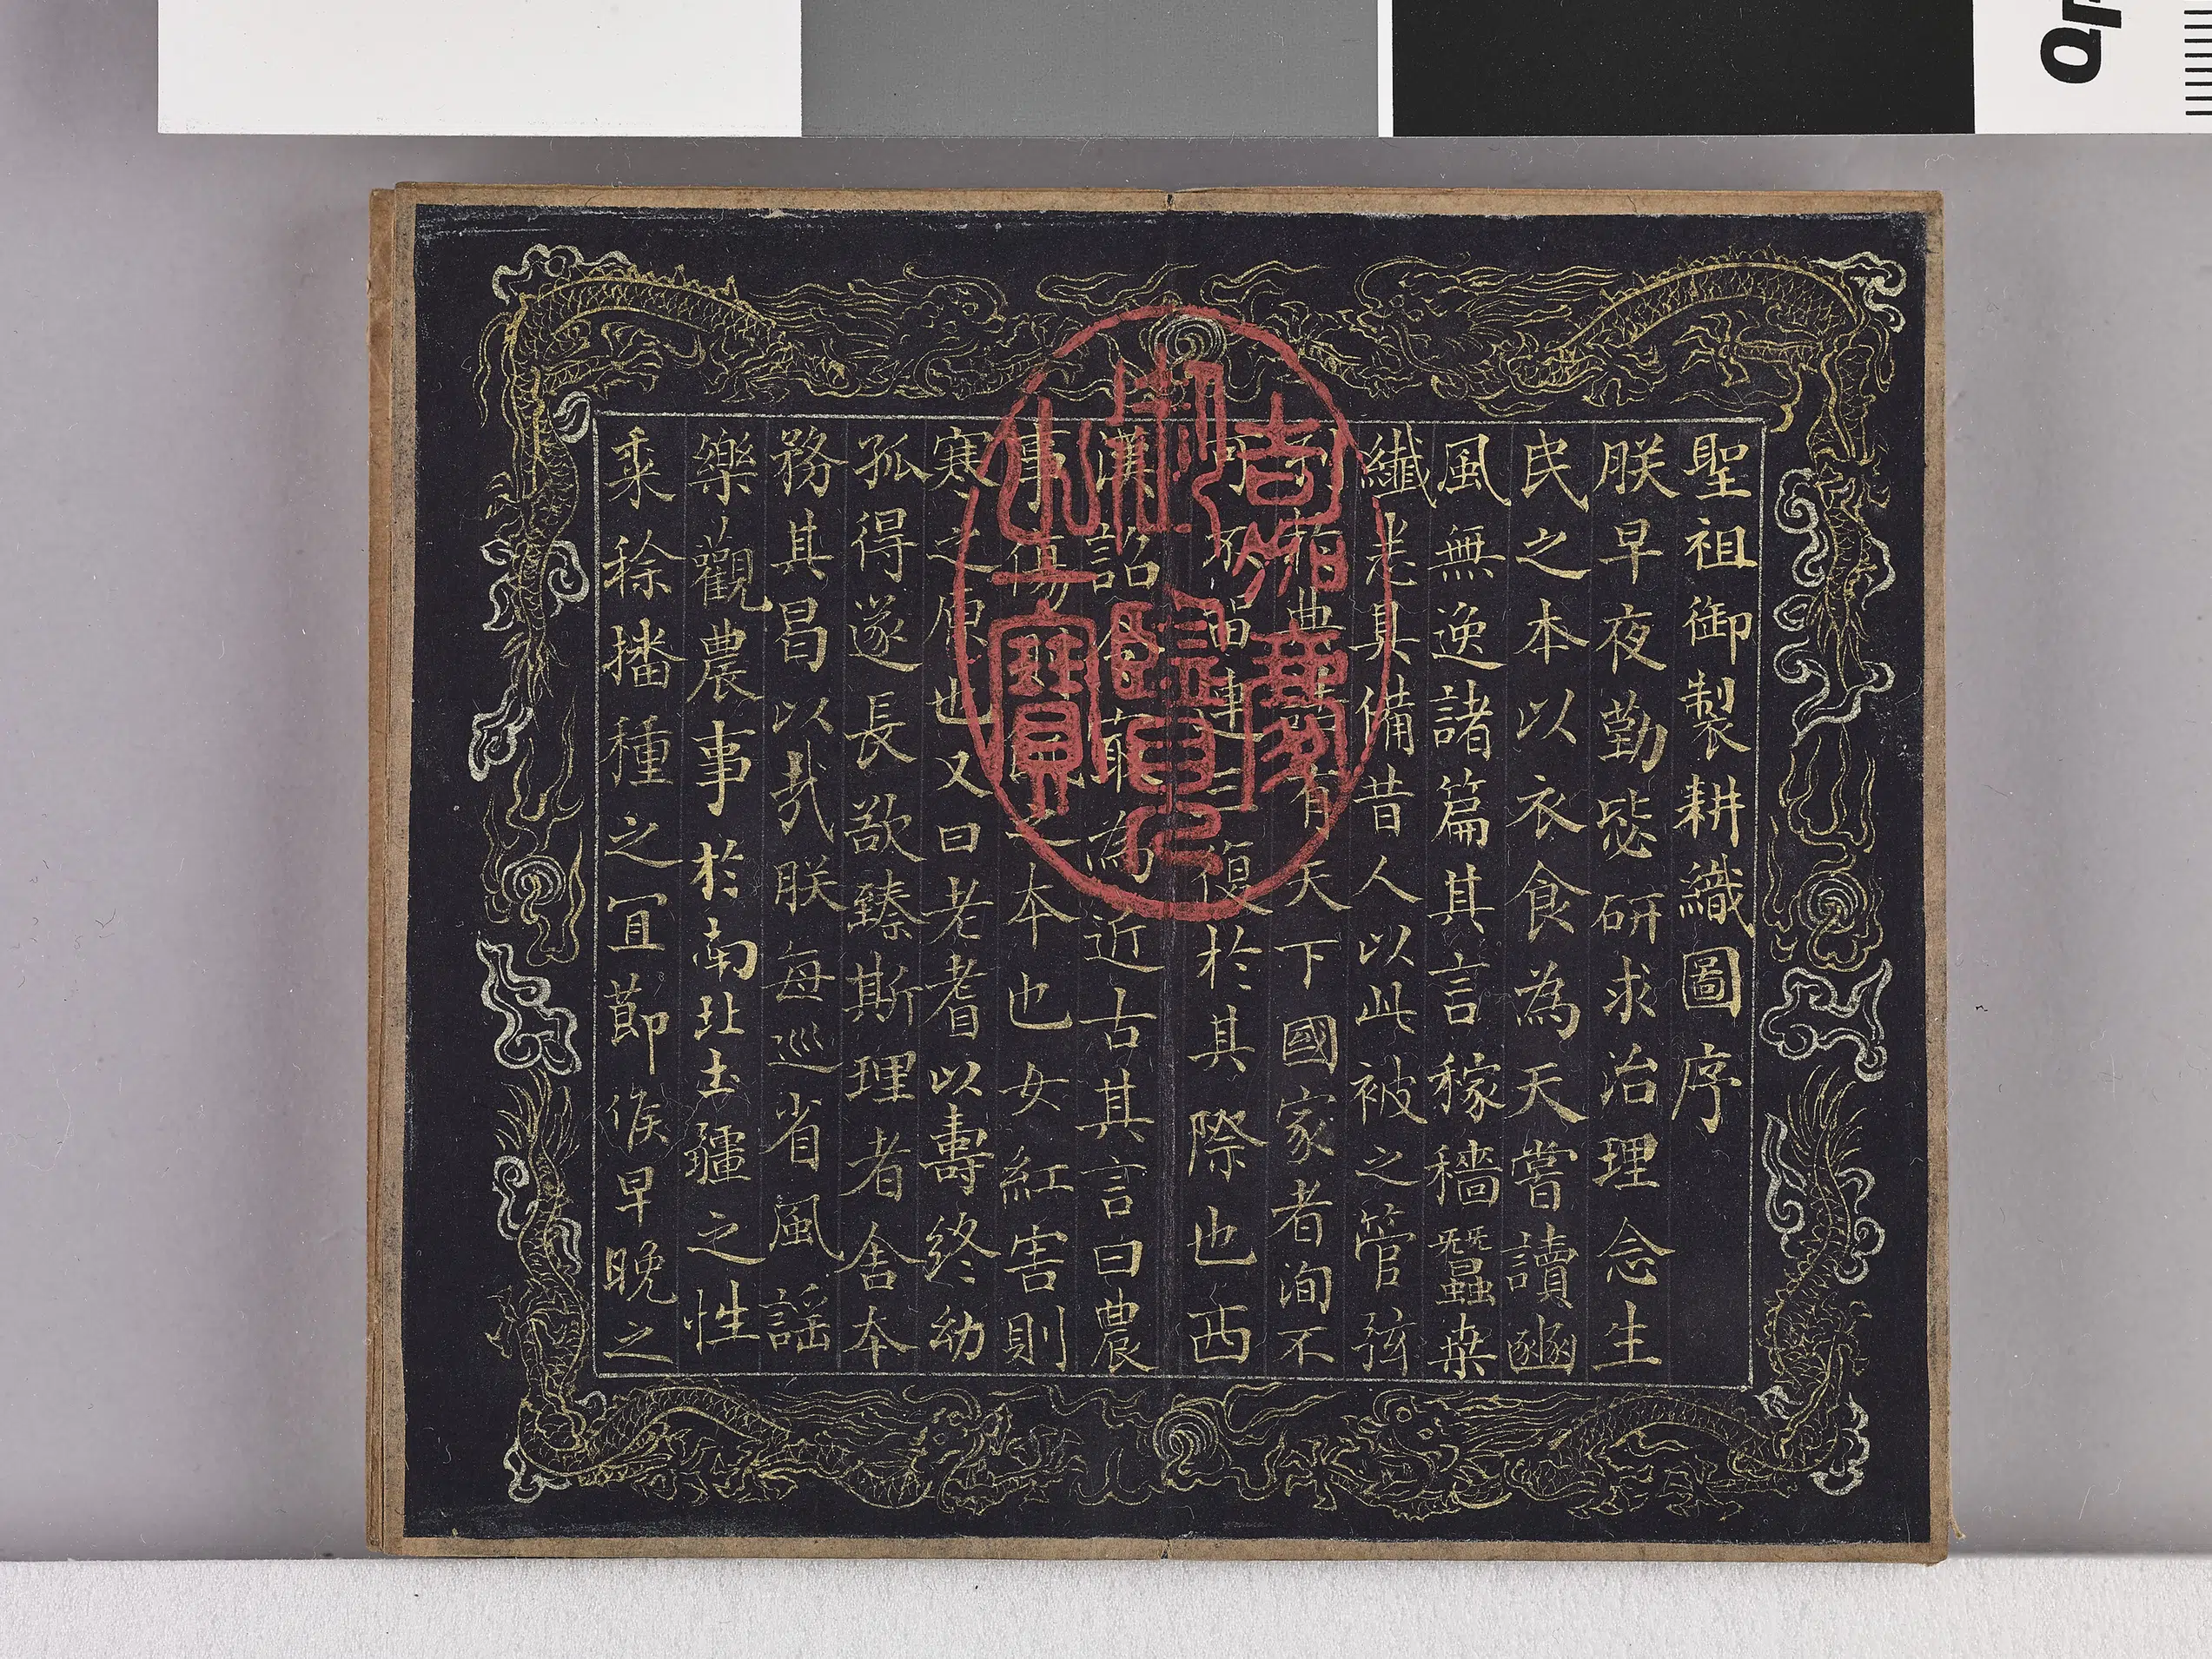 聖祖御製耕織圖序
朕早夜勤毖研求治理念生
民之本以衣食為天嘗讀豳
風無逸諸篇其言稼穡蠶桒
纖悉具備昔人以此被之管弦
列典誥有天下國家者洵不
可不留連三復於其際也西
漢詔令最為近古其言曰農
事傷則飢之本也女紅害則
寒之原也又曰老耆以壽終幼
孤得遂長欲臻斯理者舍本
務其昌以哉朕每巡省風謠
樂觀農事於南北土疆之性
黍稌播種之宜節候早晚之
嘉慶
御覽
之寶